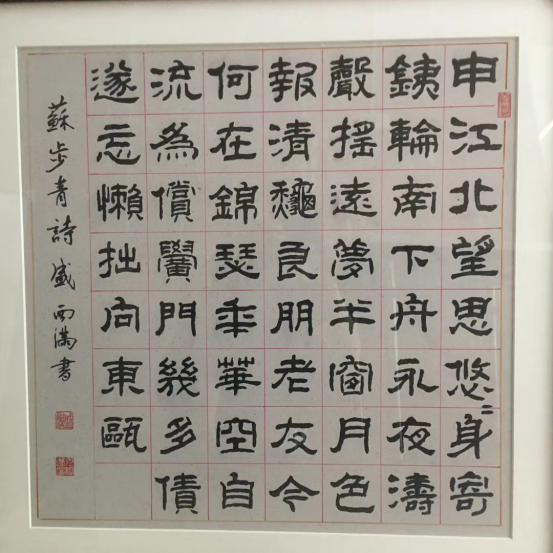 申江北望思悠〻身寄
銕輪南下舟永夜濤
聲搖遠夢半窗月色
報清龝良朋老友今
何在錦瑟年華空自
流為償黌門幾多債
遂忘懶拙向東甌
蘇步青詩 盛滿書